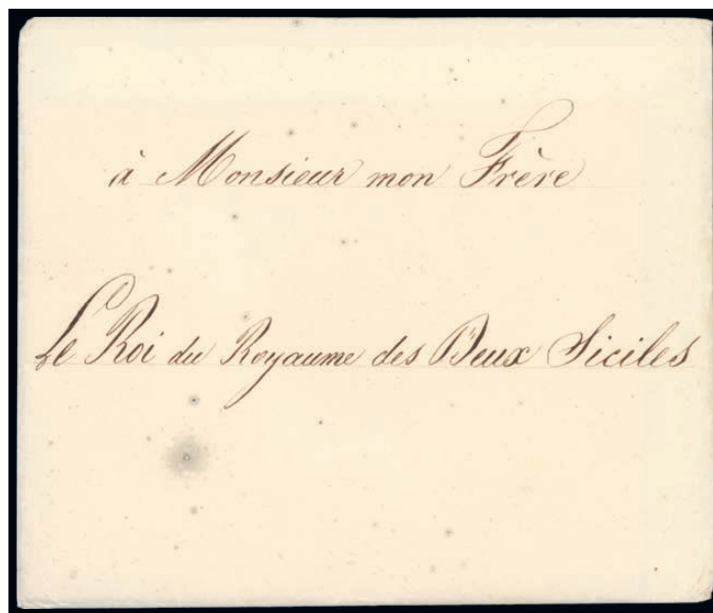 à Monsieur mon Frère
Le Roi du Royaume des Deux Siciles